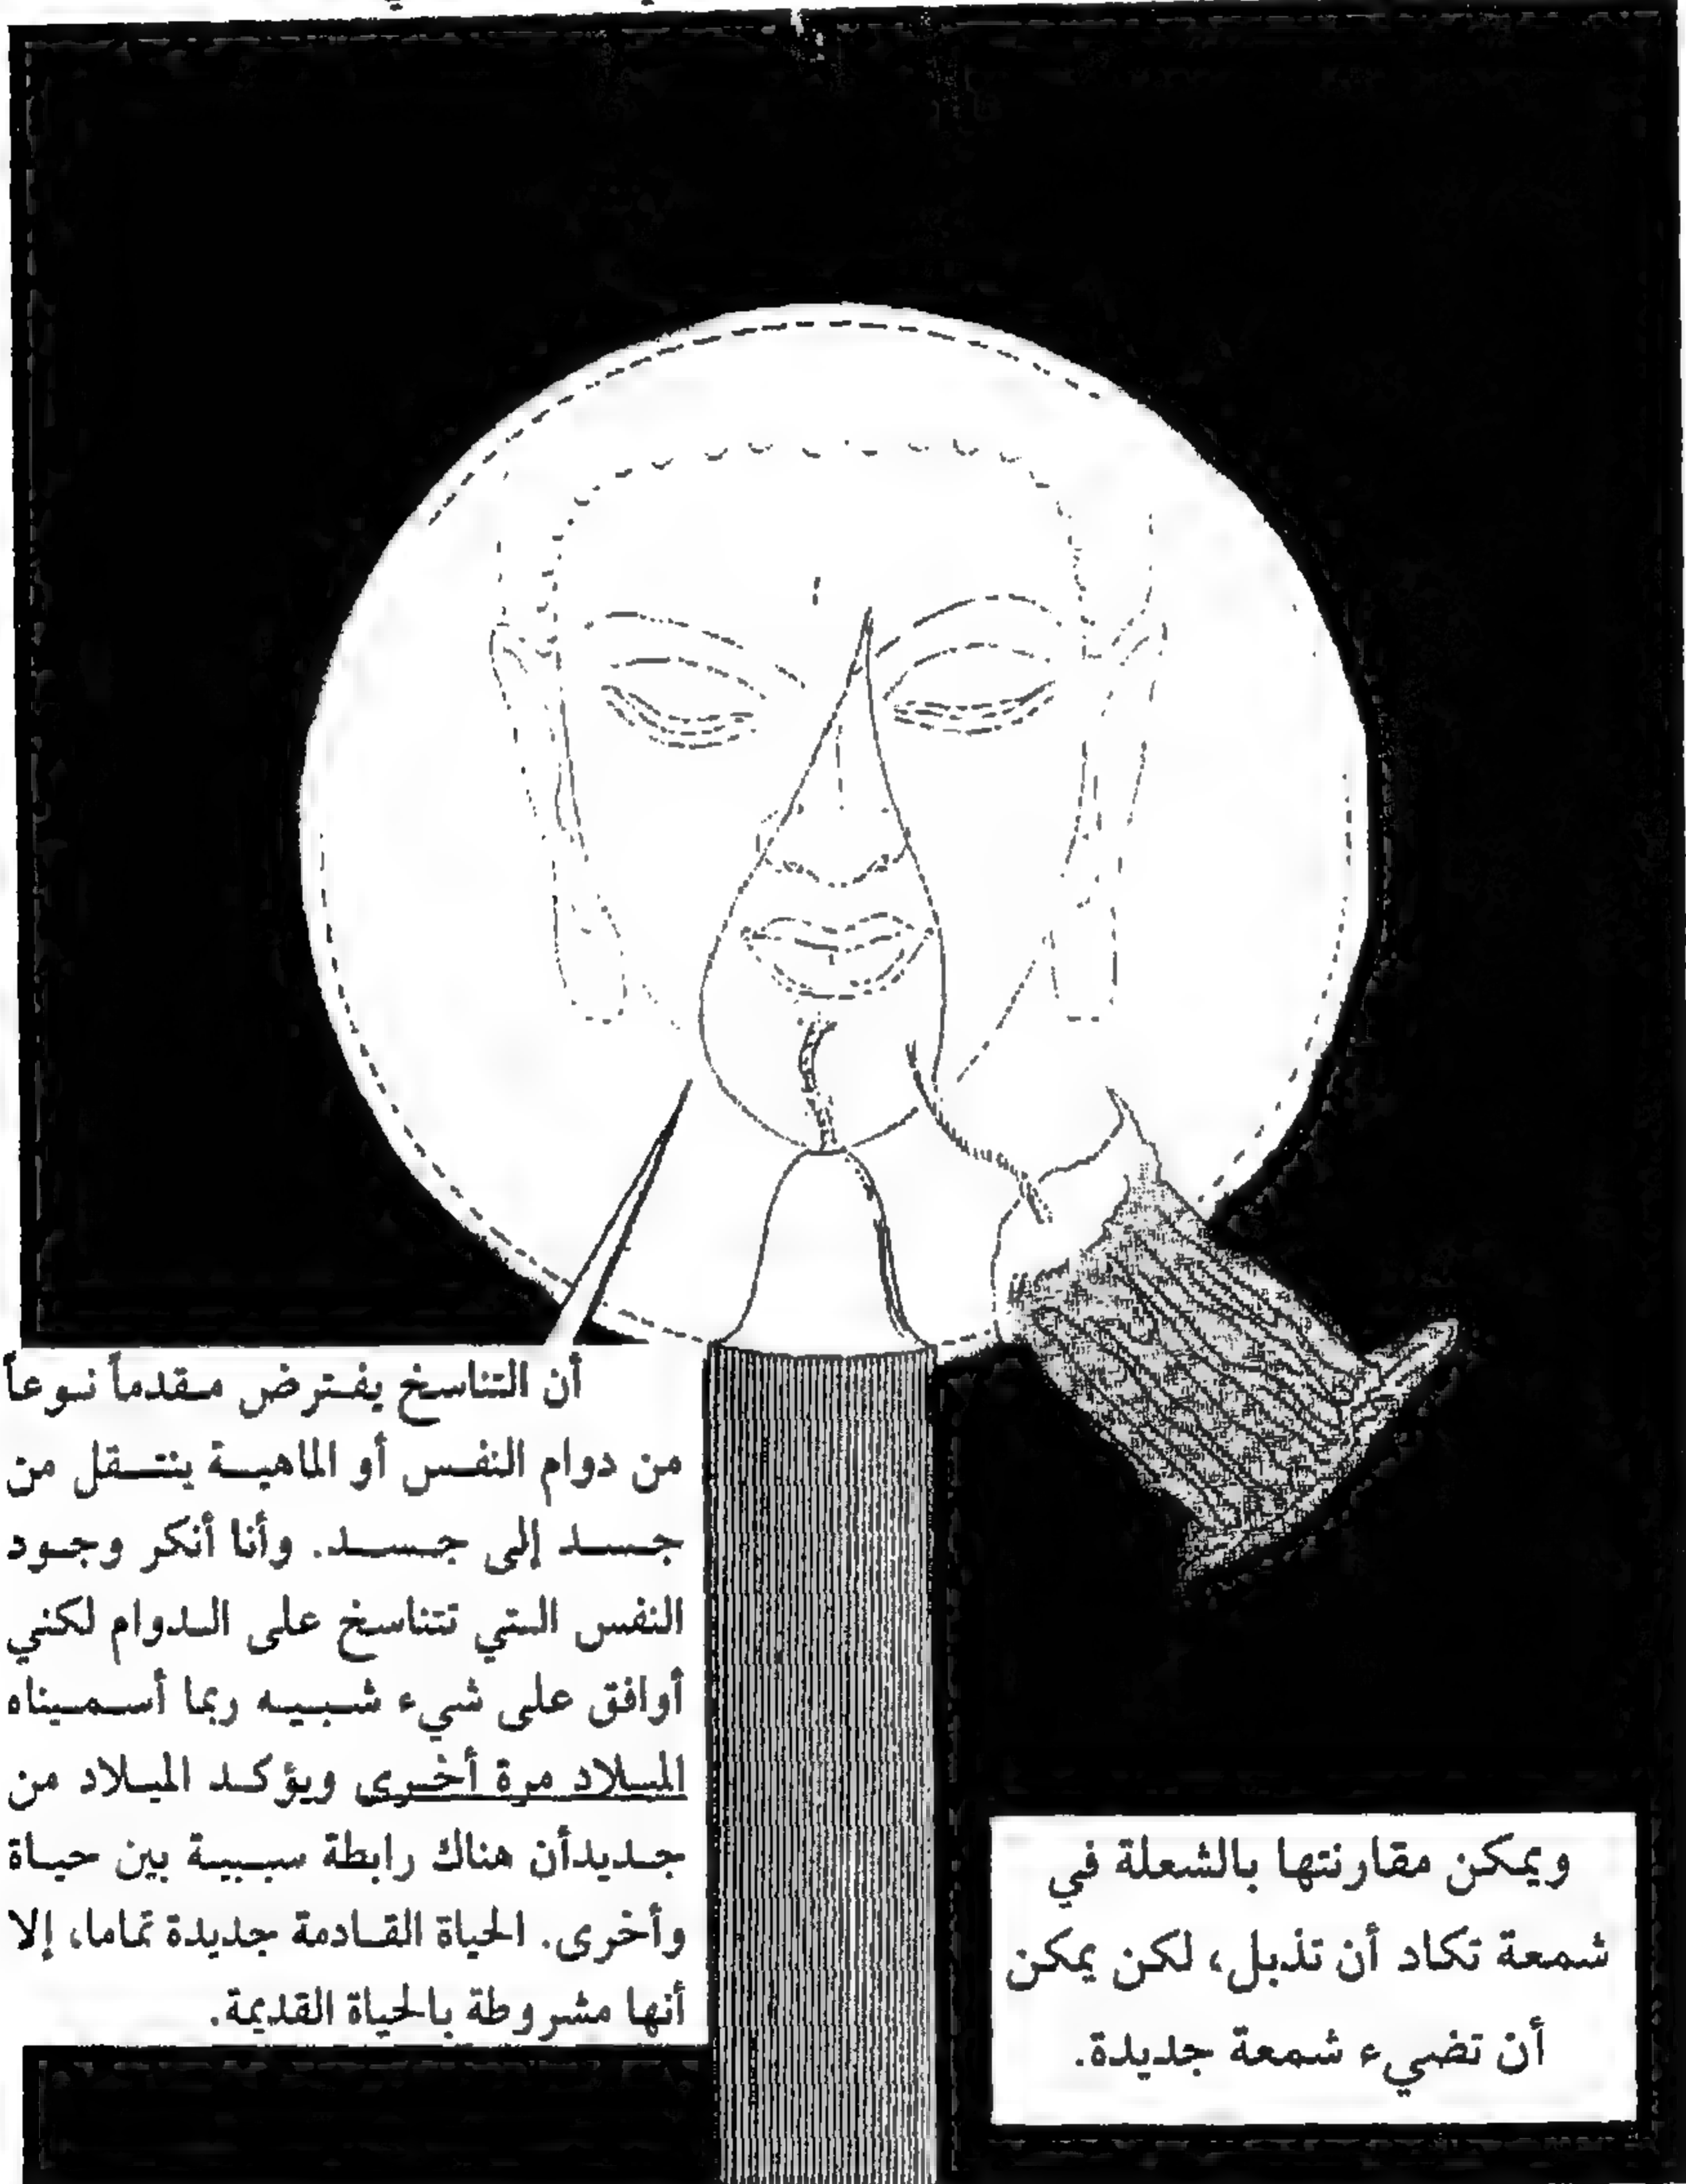 أن التناسخ يفترض مقدماً نوعاً
من دوام النفس أو الماهية ينتقل من
جسد إلى جسد. وأنا أنكر وجود
النفس التي تتناسخ على الدوام لكني
أوافق على شيء شبيه ربما أسميناه
الميلاد مرة أخرى ويؤكد الميلاد من
جديدأن هناك رابطة سببية بين حياة
وأخرى. الحياة القادمة جديدة تماما، إلا
أنها مشروطة بالحياة القديمة.
ويمكن مقارنتها بالشعلة في
شمعة تكاد أن تذبل، لكن يمكن
أن تضيء شمعة جديدة.